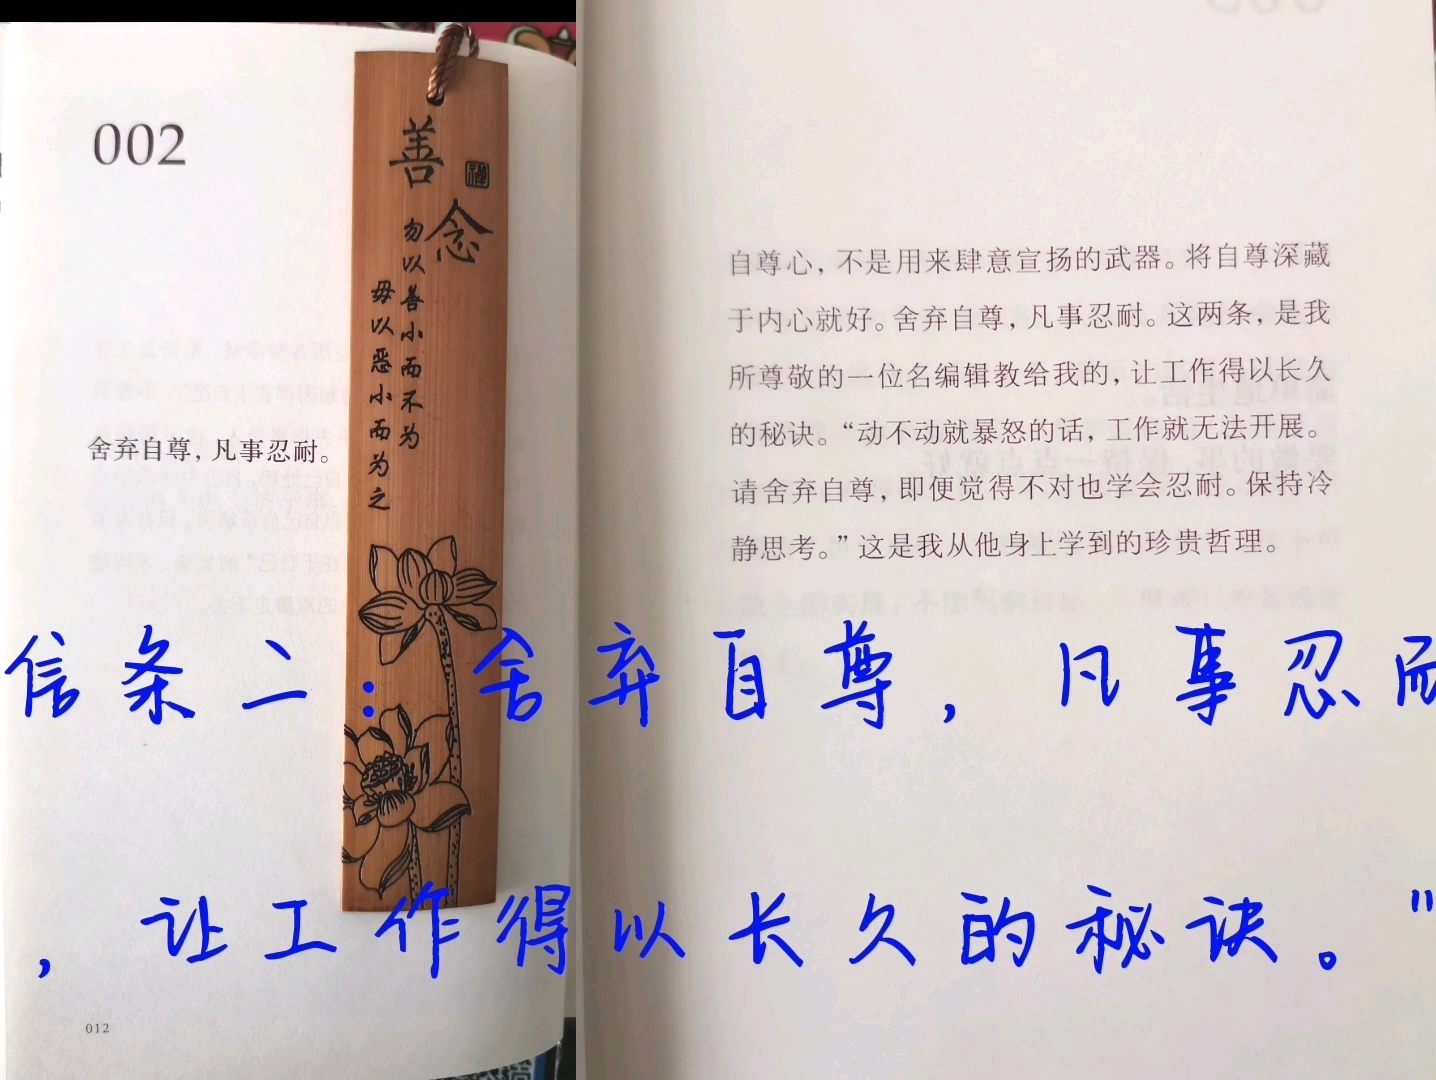 002
善念
禅
勿以善小而不为
毋以恶小而为之
舍弃自尊，凡事忍耐。
012
自尊心，不是用来肆意宣扬的武器。将自尊深藏
于内心就好。舍弃自尊，凡事忍耐。这两条，是我
所尊敬的一位名编辑教给我的，让工作得以长久
的秘诀。“动不动就暴怒的话，工作就无法开展。
请舍弃自尊，即便觉得不对也学会忍耐。保持冷
静思考。”这是我从他身上学到的珍贵哲理。
信条二：舍弃自尊，凡事忍耐
，让工作得以长久的秘诀。“